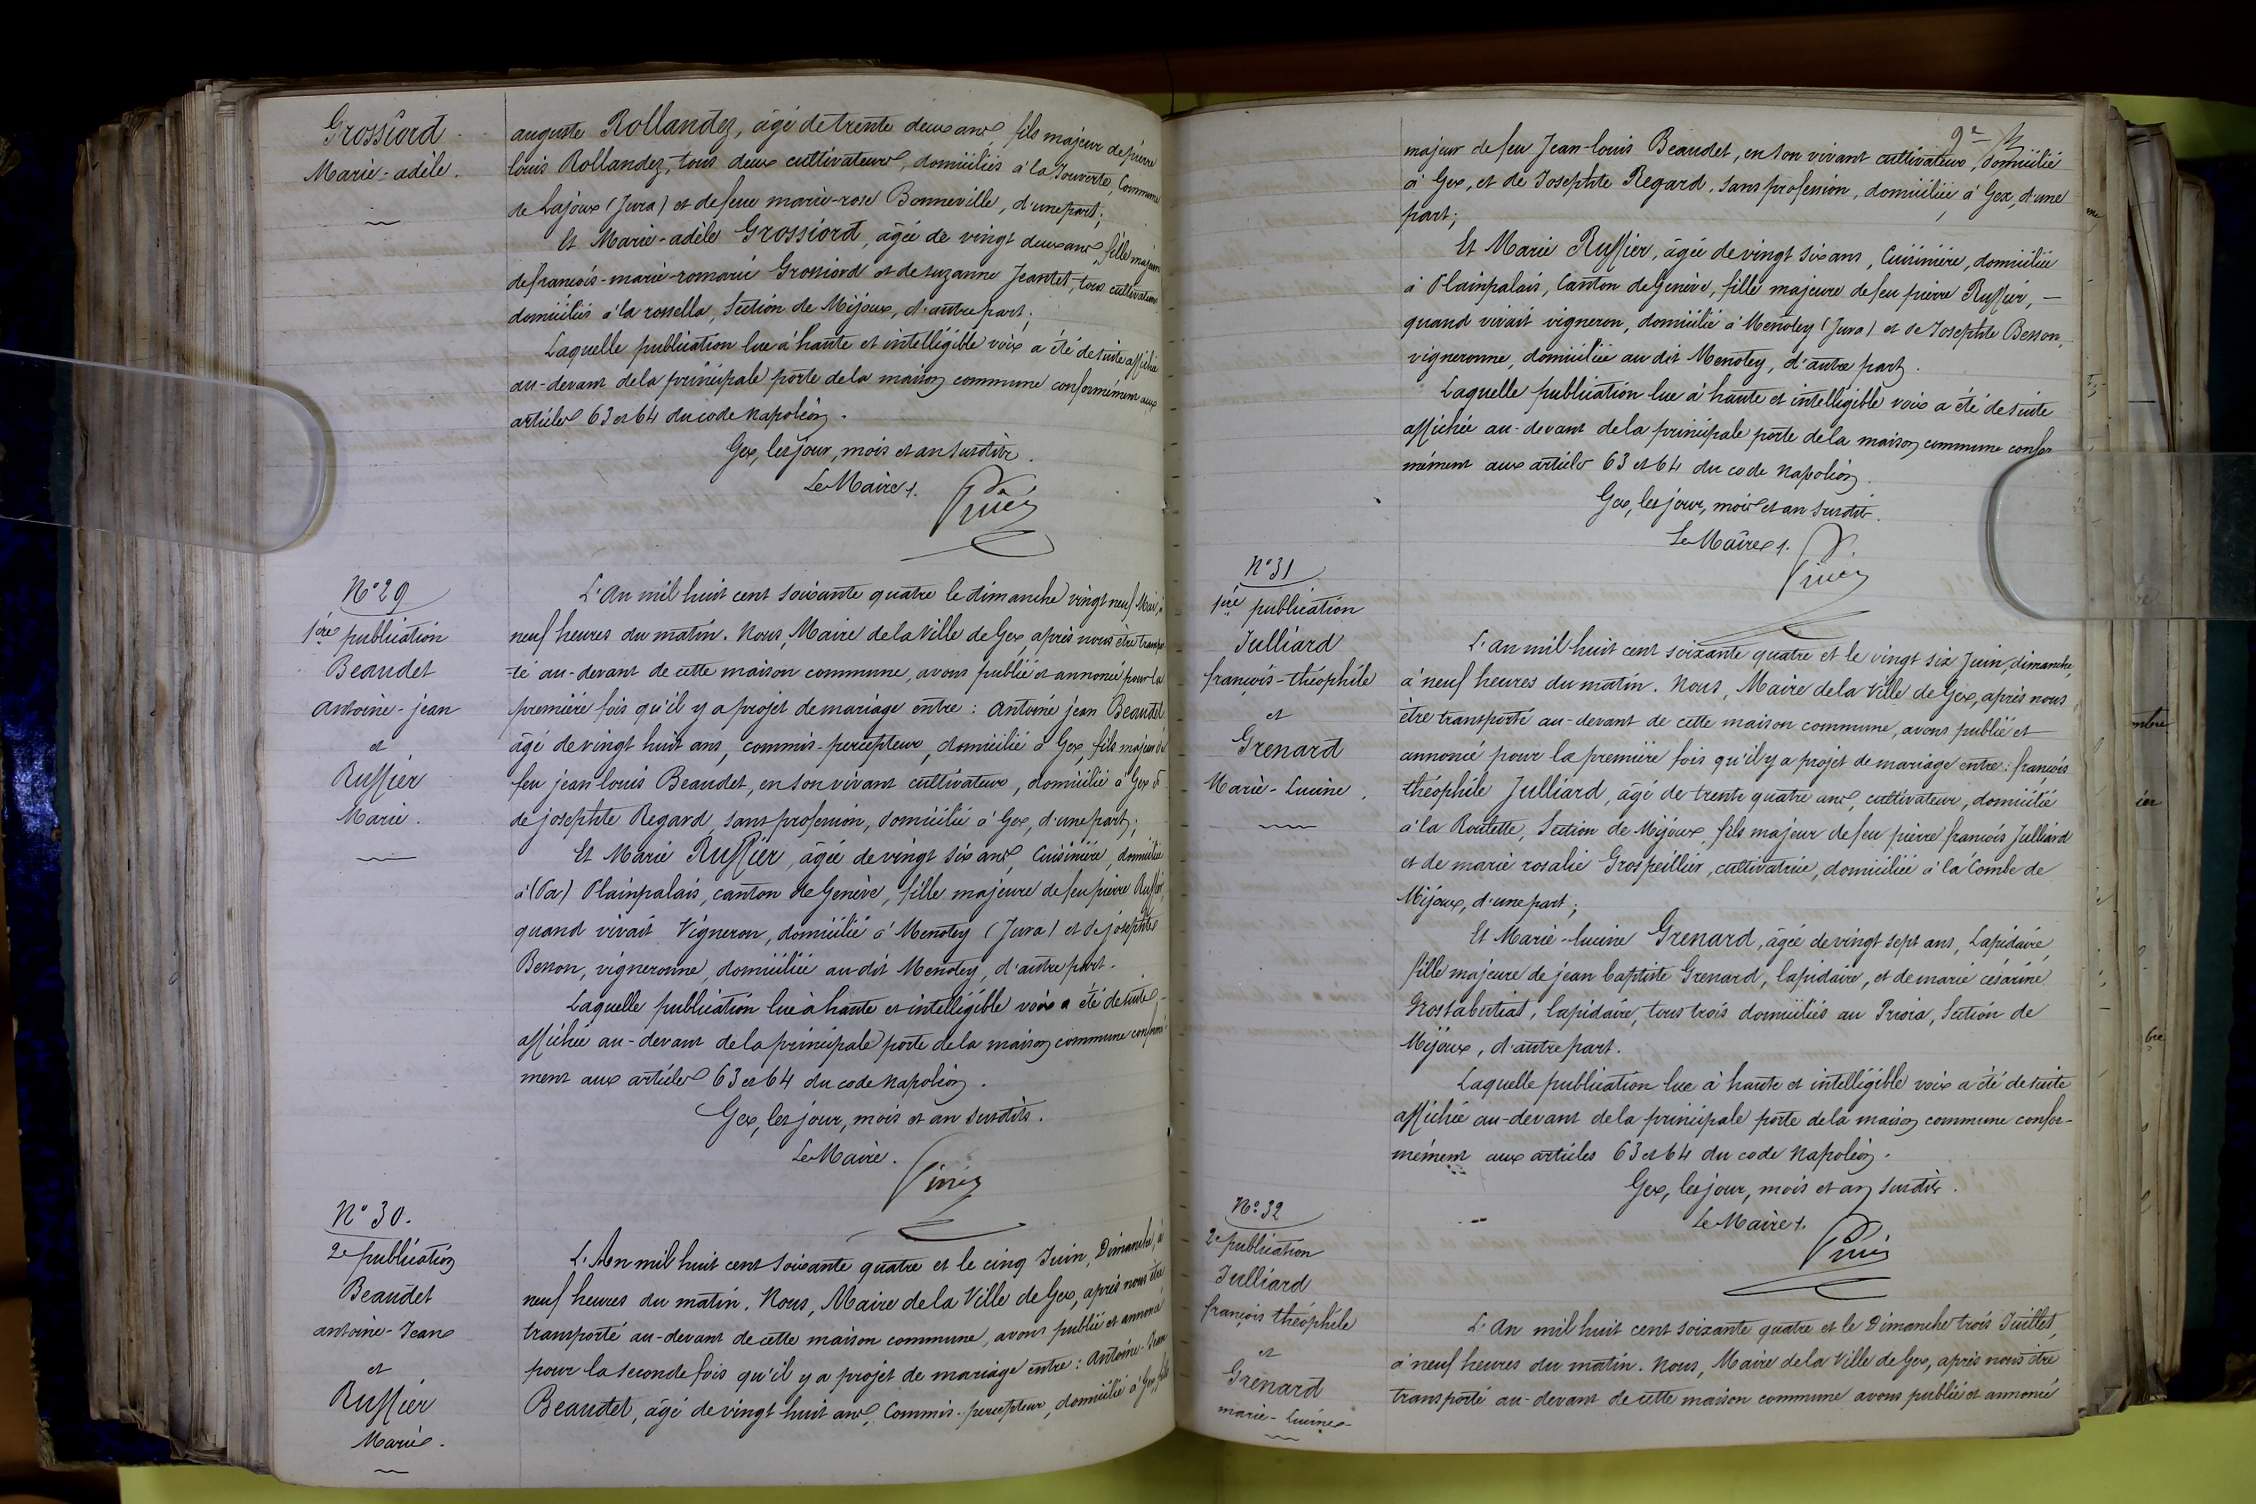 Grossiord
Marie-adèle.
auguste Rollandez, âgé de trente deux ans, fils majeur de pierre
louis Rollandez, tous deux cultivateurs, domiciliés à la Joüverte, Commune
de Lajoux (Jura) et de feue marie-rose Bonneville, d'une part;
Et Marie-adèle Grossiord, âgée de vingt deux ans, fille majeure
de françois-marie-romarie Grossiord et de suzanne Jeantet, tous cultivateurs
domiciliés à la rossella, Section de Mijoux, d'autre part;
Laquelle publication lue à haute et intelligible voix a été de suite affichée
au-devant de la principale porte de la maison commune conformément aux
articles 63 et 64 du code napoléon.
Gex, les jour, mois et an susdits.
Le Maire
N° 29
1ère publication
Beaudet
Antoine-jean
et
Ruffier
Marie.
L'An mil huit cent soixante quatre le dimanche vingt neuf Mai, à
neuf heures du matin. Nous, Maire de la Ville de Gex, après nous être transpor
-té au-devant de cette maison commune, avons publié et annoncé pour la
première fois qu'il y a projet de mariage entre: Antoine jean Beaudet
âgé de vingt huit ans, commis-percepteur, domicilié à Gex, fils majeur de
feu jean louis Beaudet, en son vivant cultivateur, domicilié à Gex &
de josephte Regard, sans profession, domicilié à Gex, d'une part;
Et Marie Ruffier, âgée de vingt six ans, Cuisinière, domiciliée
à (Par) Plainpalais, canton de Genève, fille majeure de feu pierre Ruffier,
quand vivait Vigneron, domicilié à Menotey (Jura) et de josephte
Besson, vigneronne, domiciliée au dit Menotey, d'autre part.
Laquelle publication lue à haute et intelligible voix a été de suite
affichée au-devant de la principale porte de la maison commune conformé
ment aux articles 63 et 64 du code napoléon.
Gex, les jour, mois et an susdits.
Le Maire.
N° 30.
2e publication
Beaudet
antoine-Jean
et
Ruffier
Marie.
L'An mil huit cent soixante quatre et le cinq Juin, Dimanche, à
neuf heures du matin. Nous, Maire de la Ville de Gex, après nous être
transporté au-devant de cette maison commune, avons publié et annoncé
pour la seconde fois qu'il y a projet de mariage entre: Antoine-Jean
Beaudet, âgé de vingt huit ans, Commis-percepteur, domicilié à Gex, fils
9e
majeur de feu Jean-louis Beaudet, en son vivant cultivateur, domicilié
à Gex, et de Josephte Regard, sans profession, domiciliée à Gex, d'une
part;
Et Marie Ruffier, âgée de vingt six ans, Cuisinière, domiciliée
à Plainpalais, Canton de Genève, fille majeure de feu pierre Ruffier, —
quand vivait vigneron, domicilié à Menotey (Jura) et de Josephte Besson,
vigneronne, domiciliée au dit Menotey, d'autre part.
Laquelle publication lue à haute et intelligible voix a été de suite
affichée au-devant de la principale porte de la maison commune confor
mément aux articles 63 et 64 du code napoléon.
Gex, les jour, mois et an susdits.
Le Maire
N° 31
1ère publication
Julliard
françois-théophile
et
Grenard
Marie-Lucine.
L'an mil huit cent soixante quatre et le vingt six Juin, dimanche,
à neuf heures du matin. Nous, Maire de la Ville de Gex, après nous
être transporté au-devant de cette maison commune, avons publié et
annoncé pour la première fois qu'il y a projet de mariage entre: françois
théophile Julliard, âgé de trente quatre ans, cultivateur, domicilié
à la Roulette, Section de Mijoux, fils majeur de feu pierre françois Julliard
et de marie rosalie Grospeillier, cultivatrice, domiciliée à la Combe de
Mijoux, d'une part;
Et Marie-lucine Grenard, âgée de vingt sept ans, Lapidaire,
fille majeure de jean baptiste Grenard, lapidaire, et de marie césarine
Grostabutiat, lapidaire, tous trois domiciliés au Prioia, Section de
Mijoux, d'autre part.
Laquelle publication lue à haute et intelligible voix a été de suite
affichée au-devant de la principale porte de la maison commune confor-
mément aux articles 63 et 64 du code napoléon.
Gex, les jour, mois et an susdits.
Le Maire
N° 32
2e publication
Julliard
françois théophile
et
Grenard
marie-Lucine
L'An mil huit cent soixante quatre et le Dimanche trois Juillet,
à neuf heures du matin. Nous, Maire de la Ville de Gex, après nous être
transporté au-devant de cette maison commune avons publié et annoncé